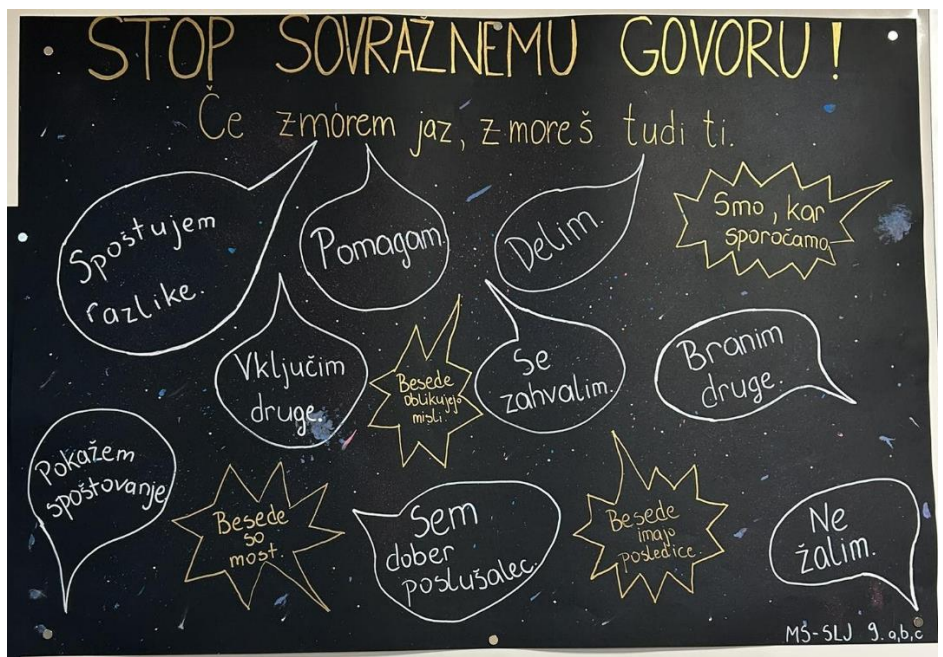 STOP SOVRAŽNEMU GOVORU!
Če zmorem jaz, zmoreš tudi ti.
Spoštujem
razlike.
Pomagam.
Delim.
Smo, kar
sporočamo.
Vključim
druge.
Besede
oblikujejo
misli.
Se
zahvalim.
Branim
druge.
Pokažem
spoštovanje.
Besede
so
most.
Sem
dober
poslušalec.
Besede
imajo
posledice.
Ne
žalim.
MŠ-SLJ 9. a,b,c